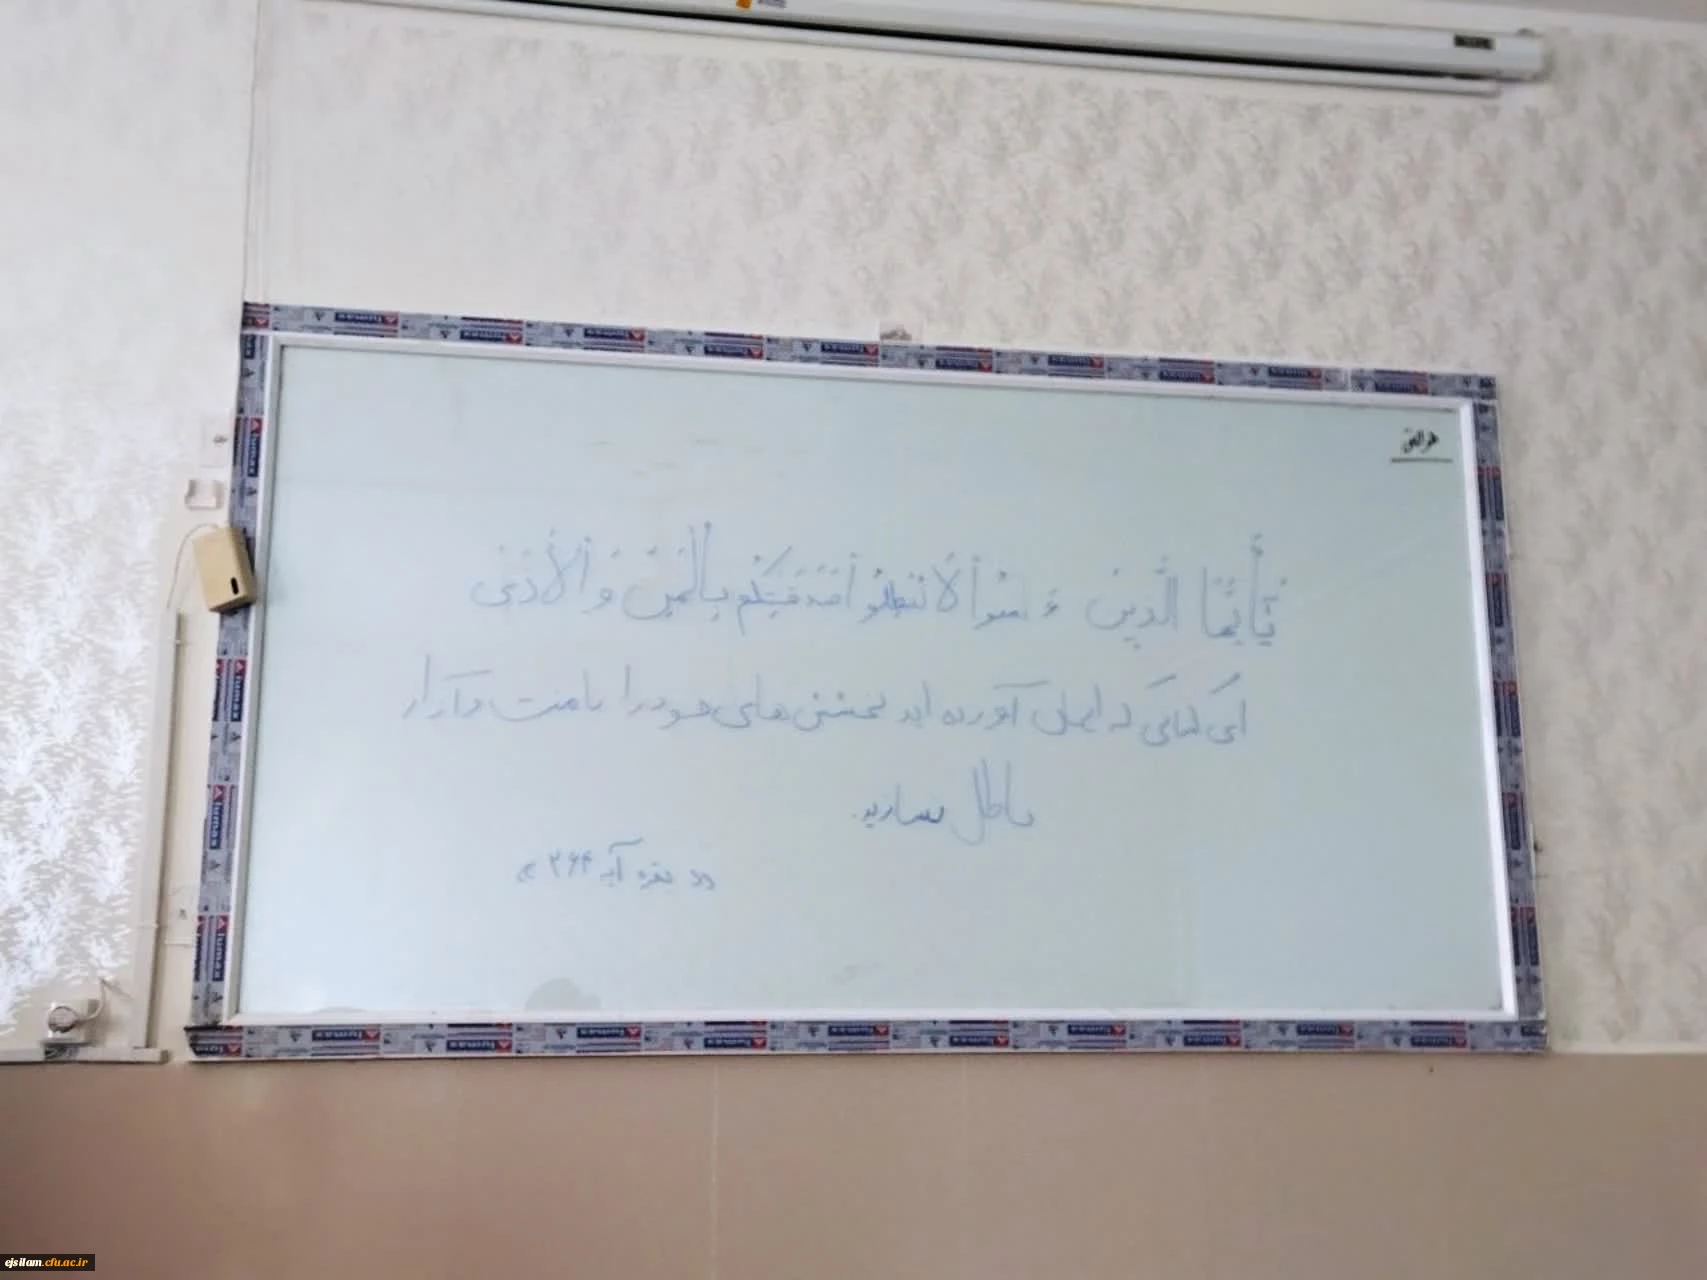 هوالحق
يَٰٓأَيُّهَا الَّذِينَ ءَامَنُوا لَا تُبْطِلُوا صَدَقَٰتِكُم بِالْمَنِّ وَالْأَذَىٰ
ای کسانی که ایمان آورده اید بخشش های خود را با منت و آزار
باطل نسازید.
«بقره آیه ۲۶۴»
Alumax
ejsilam.cfu.ac.ir